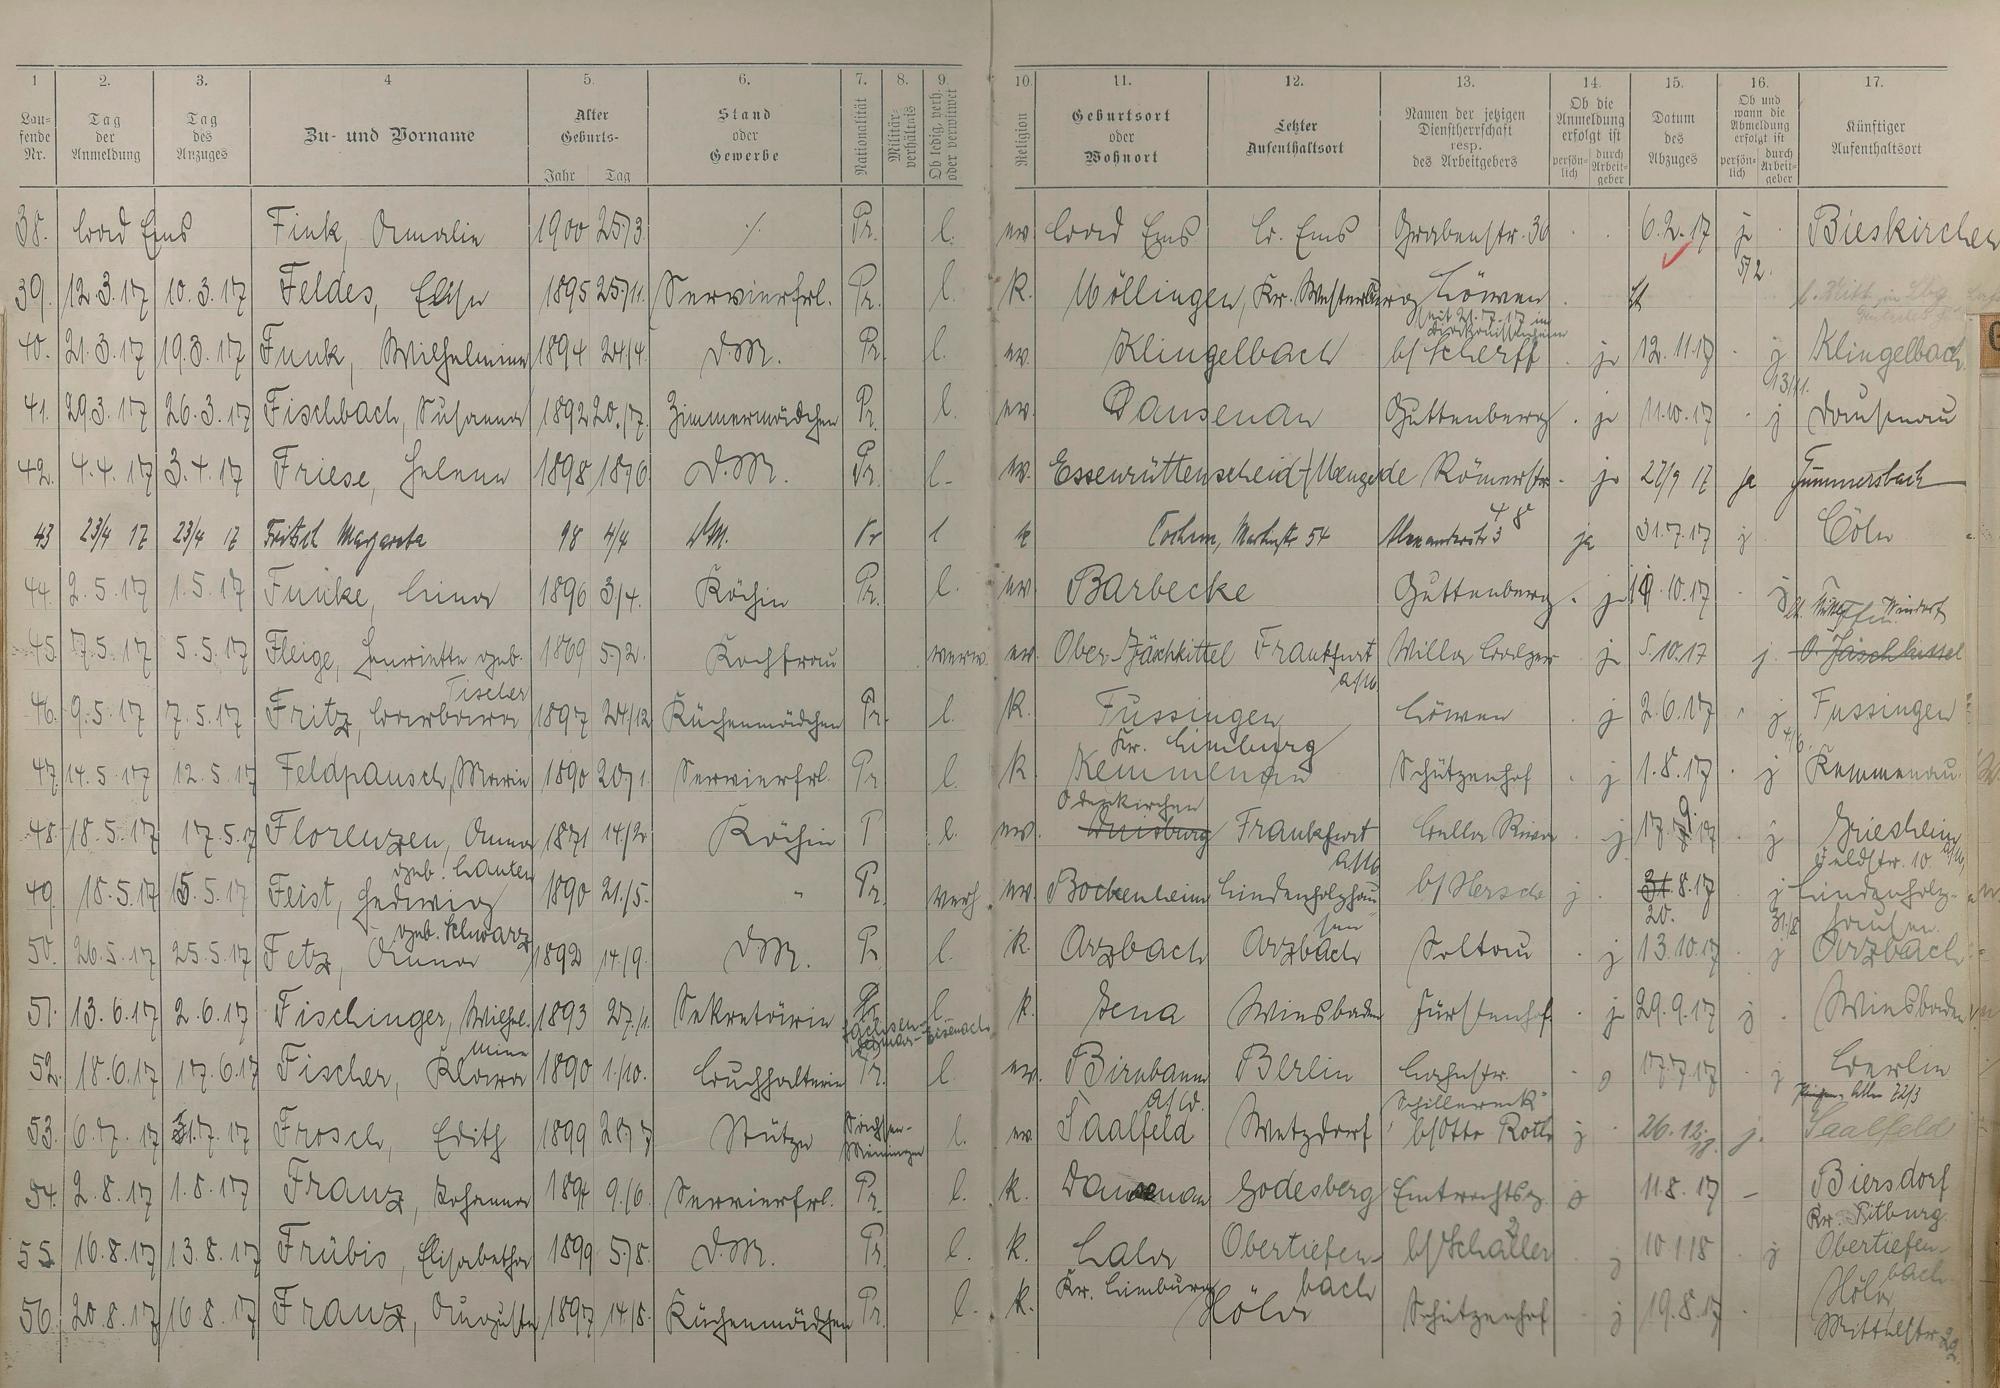 1 2. 3. 4 5. 6. 7. 8. 9. 10. 11. 12. 13. 14. 15. 16. 17.
Lau-
fende
Nr.
Tag
der
Anmeldung
Tag
des
Anzuges
Zu- und Vorname
Alter
Geburts-
Jahr Tag
Stand
oder
Gewerbe
Nationalität
Militär-
verhältnis
Ob ledig, verh.
oder verwitwet
Religion
Geburtsort
oder
Wohnort
Letzter
Aufenthaltsort
Namen der jetzigen
Dienstherrschaft
resp.
des Arbeitgebers
Ob die
Anmeldung
erfolgt ist
persön-
lich
durch
Arbeit-
geber
Datum
des
Abzuges
Ob und
wann die
Abmeldung
erfolgt ist
persön-
lich
durch
Arbeit-
geber
Künftiger
Aufenthaltsort
38. Bad Ems Fink, Amalie 1900 25/3. ./. Pr. l. ev. Bad Ems B. Ems Grabenstr. 36 6.2.17 j. 5/2. Bieskirchen
39. 12.3.17 10.3.17 Feldes, Elise 1895 25/11. Servierfrl. Pr. l. k. Möllingen, Kr. Westerburg Löwen
40. 21.3.17 19.3.17 Funk, Wilhelmine 1894 24/4. D.M. Pr. l. ev. Klingelbach b/ Scherff ja 12.11.17 j 13/11. Klingelbach
seit 21.7.17 in
41. 29.3.17 26.3.17 Fischbach, Susanna 1892 20./7. Zimmermädchen Pr. l. ev. Dausenau Guttenberg ja 11.10.17 j Dausenau
42. 4.4.17 3.4.17 Friese, Helene 1898 18/6. D.M. Pr. l. ev. Essenrüttenscheid/Mengede Römerstr. ja 27/9 17 ja Gummersbach
43 23/4 17 23/4 17 Fritsch Margareta 98 4/4 DM. Pr l k Bochum, 54 Alexanderstr 3 ja 31.7.17 j Cöln
44. 2.5.17 1.5.17 Funke, Lina 1896 3/4. Köchin Pr. l. ev. Barbecke Guttenberg ja 19.10.17 j
45. 7.5.17 5.5.17 Fleige, Henriette geb. 1869 5/2. Kochfrau verw. ev. Ober-Jäschkittel Frankfurt Villa Balzer ja 5.10.17 j. O. Jäschkittel
Tischer a/M.
46. 9.5.17 7.5.17 Fritz, Barbara 1897 24/12 Küchenmädchen Pr. l. k. Fussingen Löwen j 2.6.17 j 4/6. Fussingen
Kr. Limburg
47. 14.5.17 12.5.17 Feldpausch, Marie 1890 20/1. Servierfrl. Pr. l. k. Kemmenau Schützenhof j 1.8.17 j Kemmenau
Odenkirchen
48. 18.5.17 17.5.17 Florenzen, Anna 1871 14/2 Köchin P l. ev. Duisburg Frankfurt Bella Riva j 17.9.17 j Griesheim a/M,
geb. Lauten a/M Feldstr. 10
49. 18.5.17 15.5.17 Feist, Hedwig 1890 21./5. " Pr. verh. ev. Bockenheim Lindenholzhau b/ Hersch j 31.8.17 j Lindenholz-
geb. Schwarz sen 20. 31/8 hausen
50. 26.5.17 25.5.17 Fetz, Anna 1892 14/9. DM. Pr l. k. Arzbach Arzbach Soltau j 13.10.17 j Arzbach
51. 13.6.17 2.6.17 Fischinger, Wilhel. 1893 27./1. Sekretärin Pr. l. k. Jena Wiesbaden Fürstenhof ja 29.9.17 j Wiesbaden
mine Sachsen-Weimar-Eisenach
52. 18.6.17 17.6.17 Fischer, Klara 1890 1./10. Buchhalterin Pr. l. ev. Birnbaum Berlin Lahnstr. 17.7.17 j Berlin
a/W. "Schillereck"
53. 6.7.17 3.7.17 Frosch, Edith 1899 28/7 Stütze Sachsen-Meiningen l. ev. Saalfeld Wetzdorf b/Otto Roth j 26.12.17. j. Saalfeld
54. 2.8.17 1.8.17 Franz, Johanna 1894 9./6. Servierfrl. Pr. l. k. Dausenau Godesberg Eintrachtsg. 11.8.17 – Biersdorf
Kr. Bitburg
55. 16.8.17 13.8.17 Frübis, Elisabetha 1899 5/8. D.M. Pr l. k. Lahr Obertiefen- b/ Schaller j 10.1.18 j Obertiefen-
Kr. Limburg bach bach
56. 20.8.17 16.8.17 Franz, Auguste 1897 14/8. Küchenmädchen Pr. l. k. Höhr Schützenhof j 19.8.17 Höhr,
Mittelstr 22.